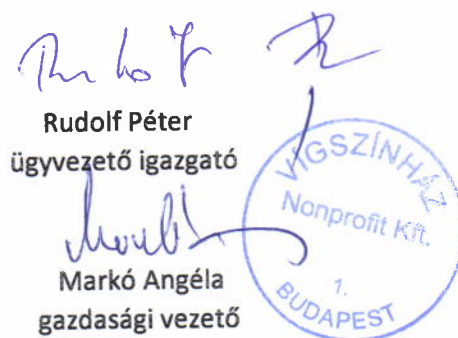 Rudolf Péter
ügyvezető igazgató
Markó Angéla
gazdasági vezető
VÍGSZÍNHÁZ
Nonprofit Kft.
1.
BUDAPEST